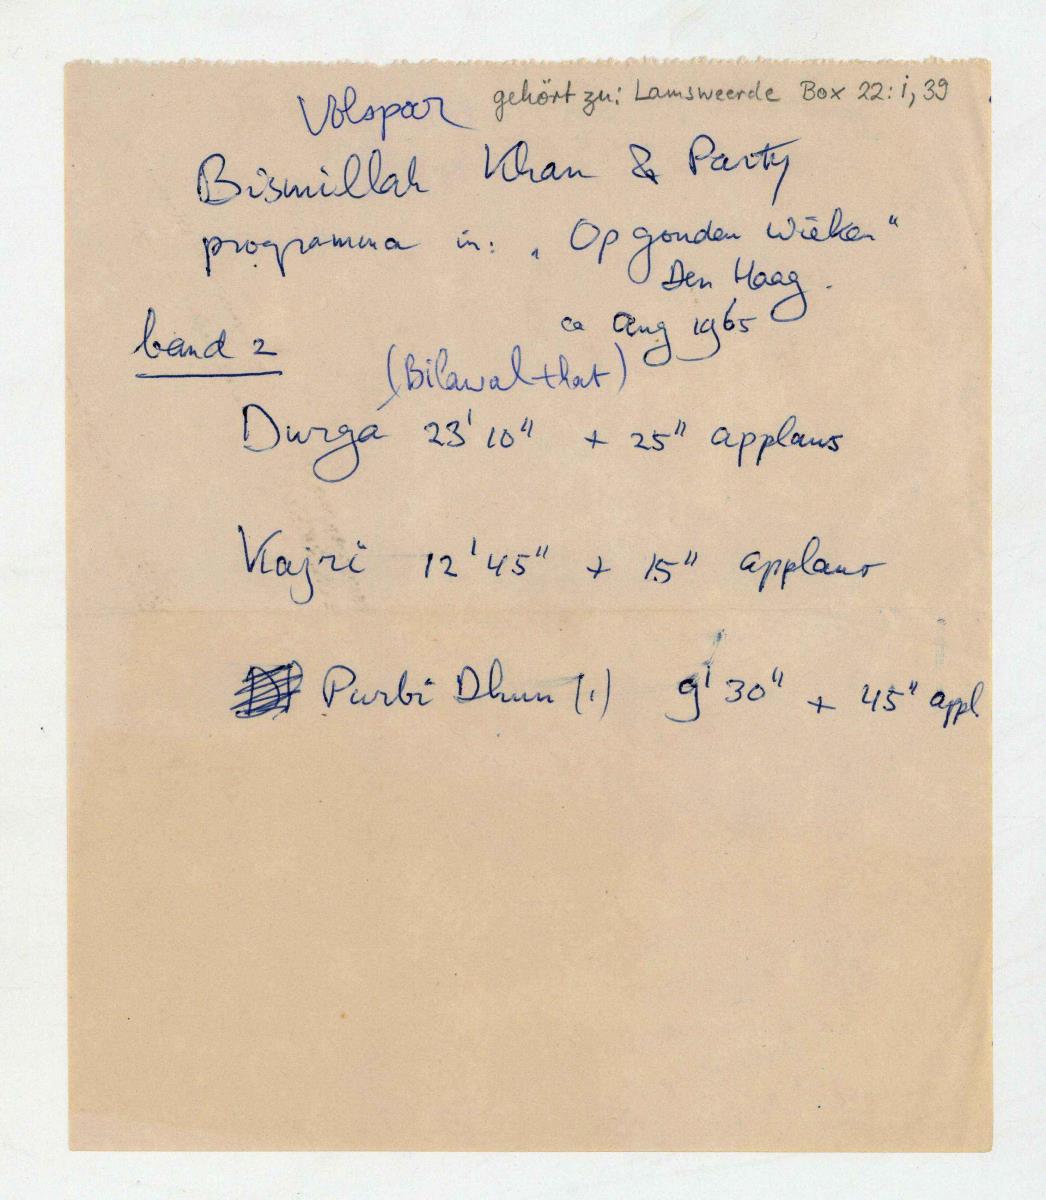 Volspoor gehört zu: Lamsweerde Box 22: i, 39
Bismillah Khan & Party
programma in: „Op gouden wieken"
Den Haag.
ca Aug 1965
band 2
(Bilawal that)
Durgá 23' 10" + 25" applaus
Kajri 12' 45" + 15" applaus
Purbi Dhun (1) 9' 30" + 45" appl.